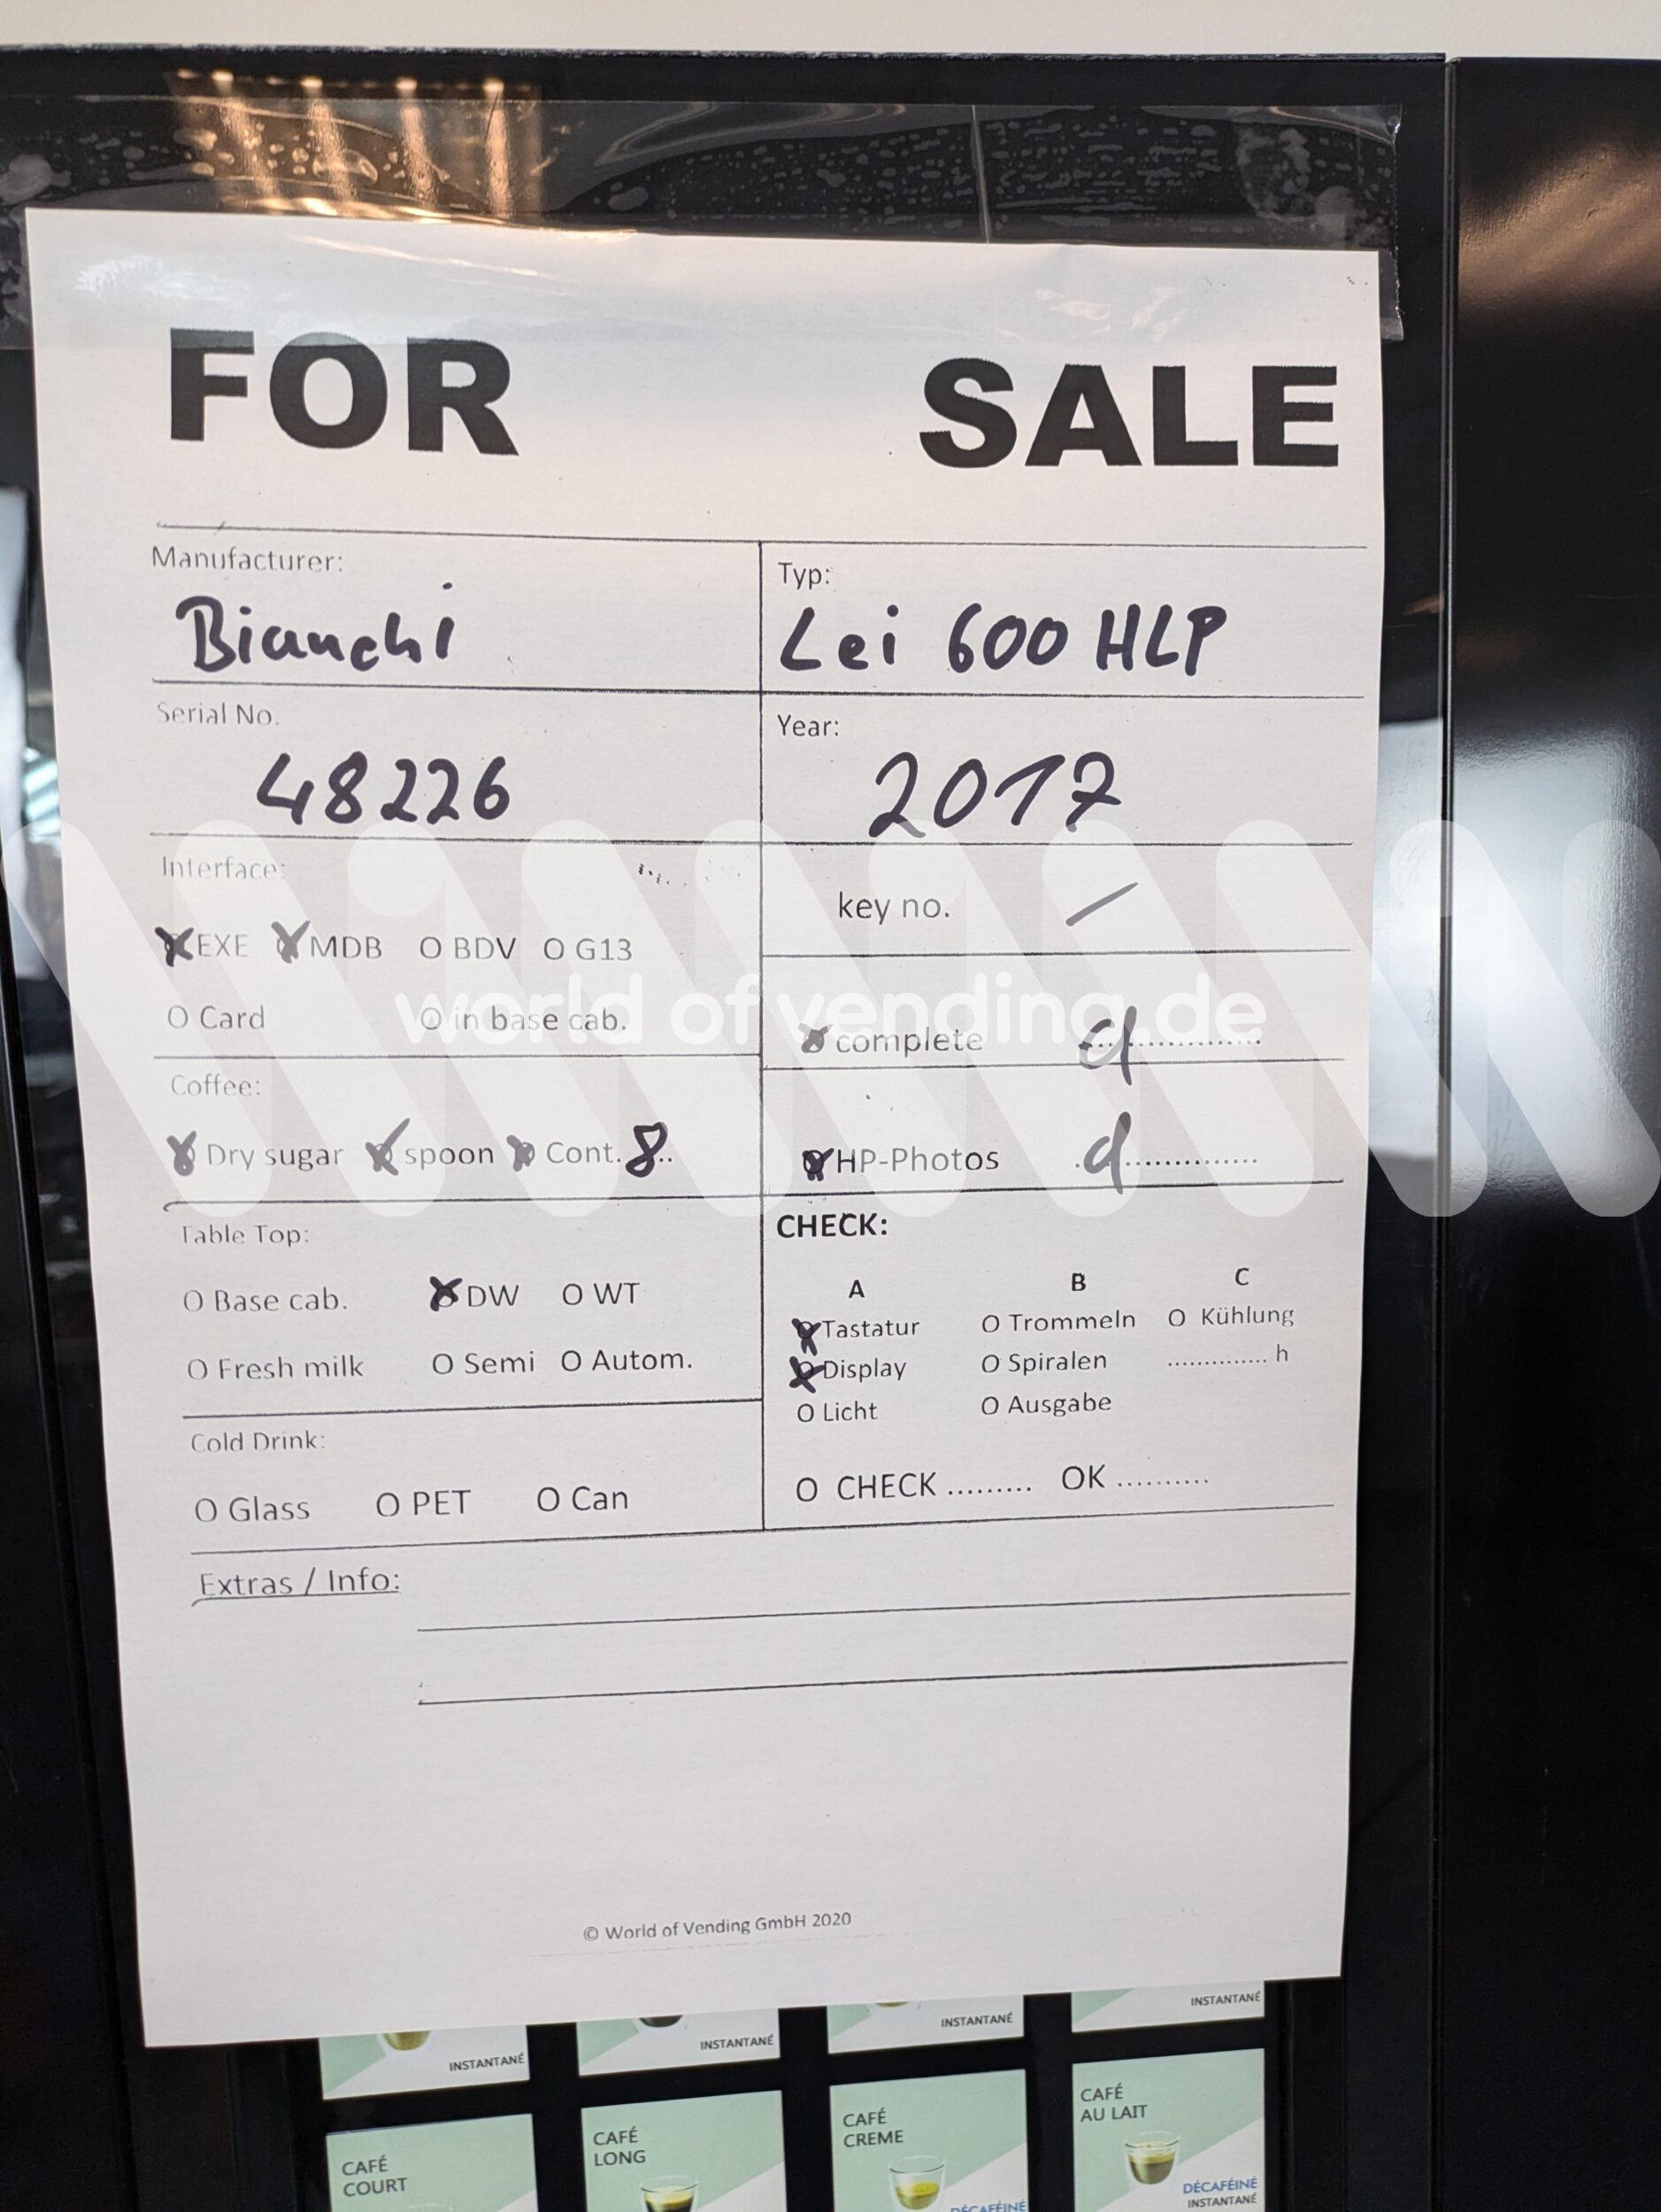 FOR SALE
Manufacturer:
Bianchi
Typ:
Lei 600 HLP
Serial No.
48226
Year:
2017
Interface:
EXE MDB O BDV O G13
O Card O in base cab.
key no. /
complete d
Coffee:
Dry sugar spoon Cont. 8..
HP-Photos d
Table Top:
O Base cab. DW O WT
O Fresh milk O Semi O Autom.
CHECK:
A B C
Tastatur O Trommeln O Kühlung
Display O Spiralen .............. h
O Licht O Ausgabe
O CHECK ......... OK ..........
Cold Drink:
O Glass O PET O Can
Extras / Info:
© World of Vending GmbH 2020
world of vending.de
INSTANTANÉ
INSTANTANÉ
INSTANTANÉ
INSTANTANÉ
CAFÉ
COURT
CAFÉ
LONG
CAFÉ
CREME
DÉCAFÉINÉ
CAFÉ
AU LAIT
DÉCAFÉINÉ
INSTANTANÉ